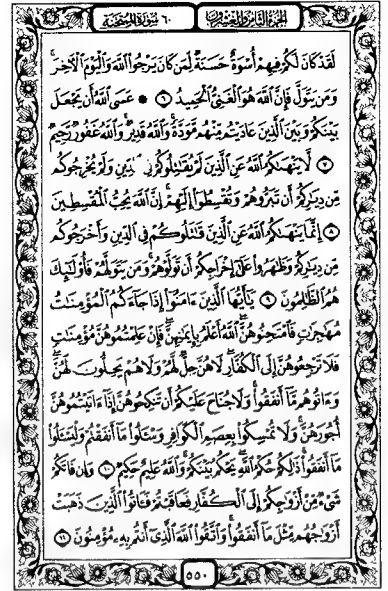 الجزء الثامن والعشرون
٦٠ سورة الممتحنة
لَقَدْ كَانَ لَكُمْ فِيهِمْ أُسْوَةٌ حَسَنَةٌ لِّمَن كَانَ يَرْجُوا۟ ٱللَّهَ وَٱلْيَوْمَ ٱلْـَٔاخِرَ ۚ
وَمَن يَتَوَلَّ فَإِنَّ ٱللَّهَ هُوَ ٱلْغَنِىُّ ٱلْحَمِيدُ ٦ ۞ عَسَى ٱللَّهُ أَن يَجْعَلَ
بَيْنَكُمْ وَبَيْنَ ٱلَّذِينَ عَادَيْتُم مِّنْهُم مَّوَدَّةً ۚ وَٱللَّهُ قَدِيرٌ ۚ وَٱللَّهُ غَفُورٌ رَّحِيمٌ
٧ لَّا يَنْهَىٰكُمُ ٱللَّهُ عَنِ ٱلَّذِينَ لَمْ يُقَٰتِلُوكُمْ فِى ٱلدِّينِ وَلَمْ يُخْرِجُوكُم
مِّن دِيَٰرِكُمْ أَن تَبَرُّوهُمْ وَتُقْسِطُوٓا۟ إِلَيْهِمْ ۚ إِنَّ ٱللَّهَ يُحِبُّ ٱلْمُقْسِطِينَ
٨ إِنَّمَا يَنْهَىٰكُمُ ٱللَّهُ عَنِ ٱلَّذِينَ قَٰتَلُوكُمْ فِى ٱلدِّينِ وَأَخْرَجُوكُم
مِّن دِيَٰرِكُمْ وَظَٰهَرُوا۟ عَلَىٰٓ إِخْرَاجِكُمْ أَن تَوَلَّوْهُمْ ۚ وَمَن يَتَوَلَّهُمْ فَأُو۟لَٰٓئِكَ
هُمُ ٱلظَّٰلِمُونَ ٩ يَٰٓأَيُّهَا ٱلَّذِينَ ءَامَنُوٓا۟ إِذَا جَآءَكُمُ ٱلْمُؤْمِنَٰتُ
مُهَٰجِرَٰتٍ فَٱمْتَحِنُوهُنَّ ۖ ٱللَّهُ أَعْلَمُ بِإِيمَٰنِهِنَّ ۖ فَإِنْ عَلِمْتُمُوهُنَّ مُؤْمِنَٰتٍ
فَلَا تَرْجِعُوهُنَّ إِلَى ٱلْكُفَّارِ ۖ لَا هُنَّ حِلٌّ لَّهُمْ وَلَا هُمْ يَحِلُّونَ لَهُنَّ ۖ
وَءَاتُوهُم مَّآ أَنفَقُوا۟ ۚ وَلَا جُنَاحَ عَلَيْكُمْ أَن تَنكِحُوهُنَّ إِذَآ ءَاتَيْتُمُوهُنَّ
أُجُورَهُنَّ ۚ وَلَا تُمْسِكُوا۟ بِعِصَمِ ٱلْكَوَافِرِ وَسْـَٔلُوا۟ مَآ أَنفَقْتُمْ وَلْيَسْـَٔلُوا۟
مَآ أَنفَقُوا۟ ۚ ذَٰلِكُمْ حُكْمُ ٱللَّهِ ۖ يَحْكُمُ بَيْنَكُمْ ۚ وَٱللَّهُ عَلِيمٌ حَكِيمٌ ١٠ وَإِن فَاتَكُمْ
شَىْءٌ مِّنْ أَزْوَٰجِكُمْ إِلَى ٱلْكُفَّارِ فَعَاقَبْتُمْ فَـَٔاتُوا۟ ٱلَّذِينَ ذَهَبَتْ
أَزْوَٰجُهُم مِّثْلَ مَآ أَنفَقُوا۟ ۚ وَٱتَّقُوا۟ ٱللَّهَ ٱلَّذِىٓ أَنتُم بِهِۦ مُؤْمِنُونَ ١١
٥٥٠